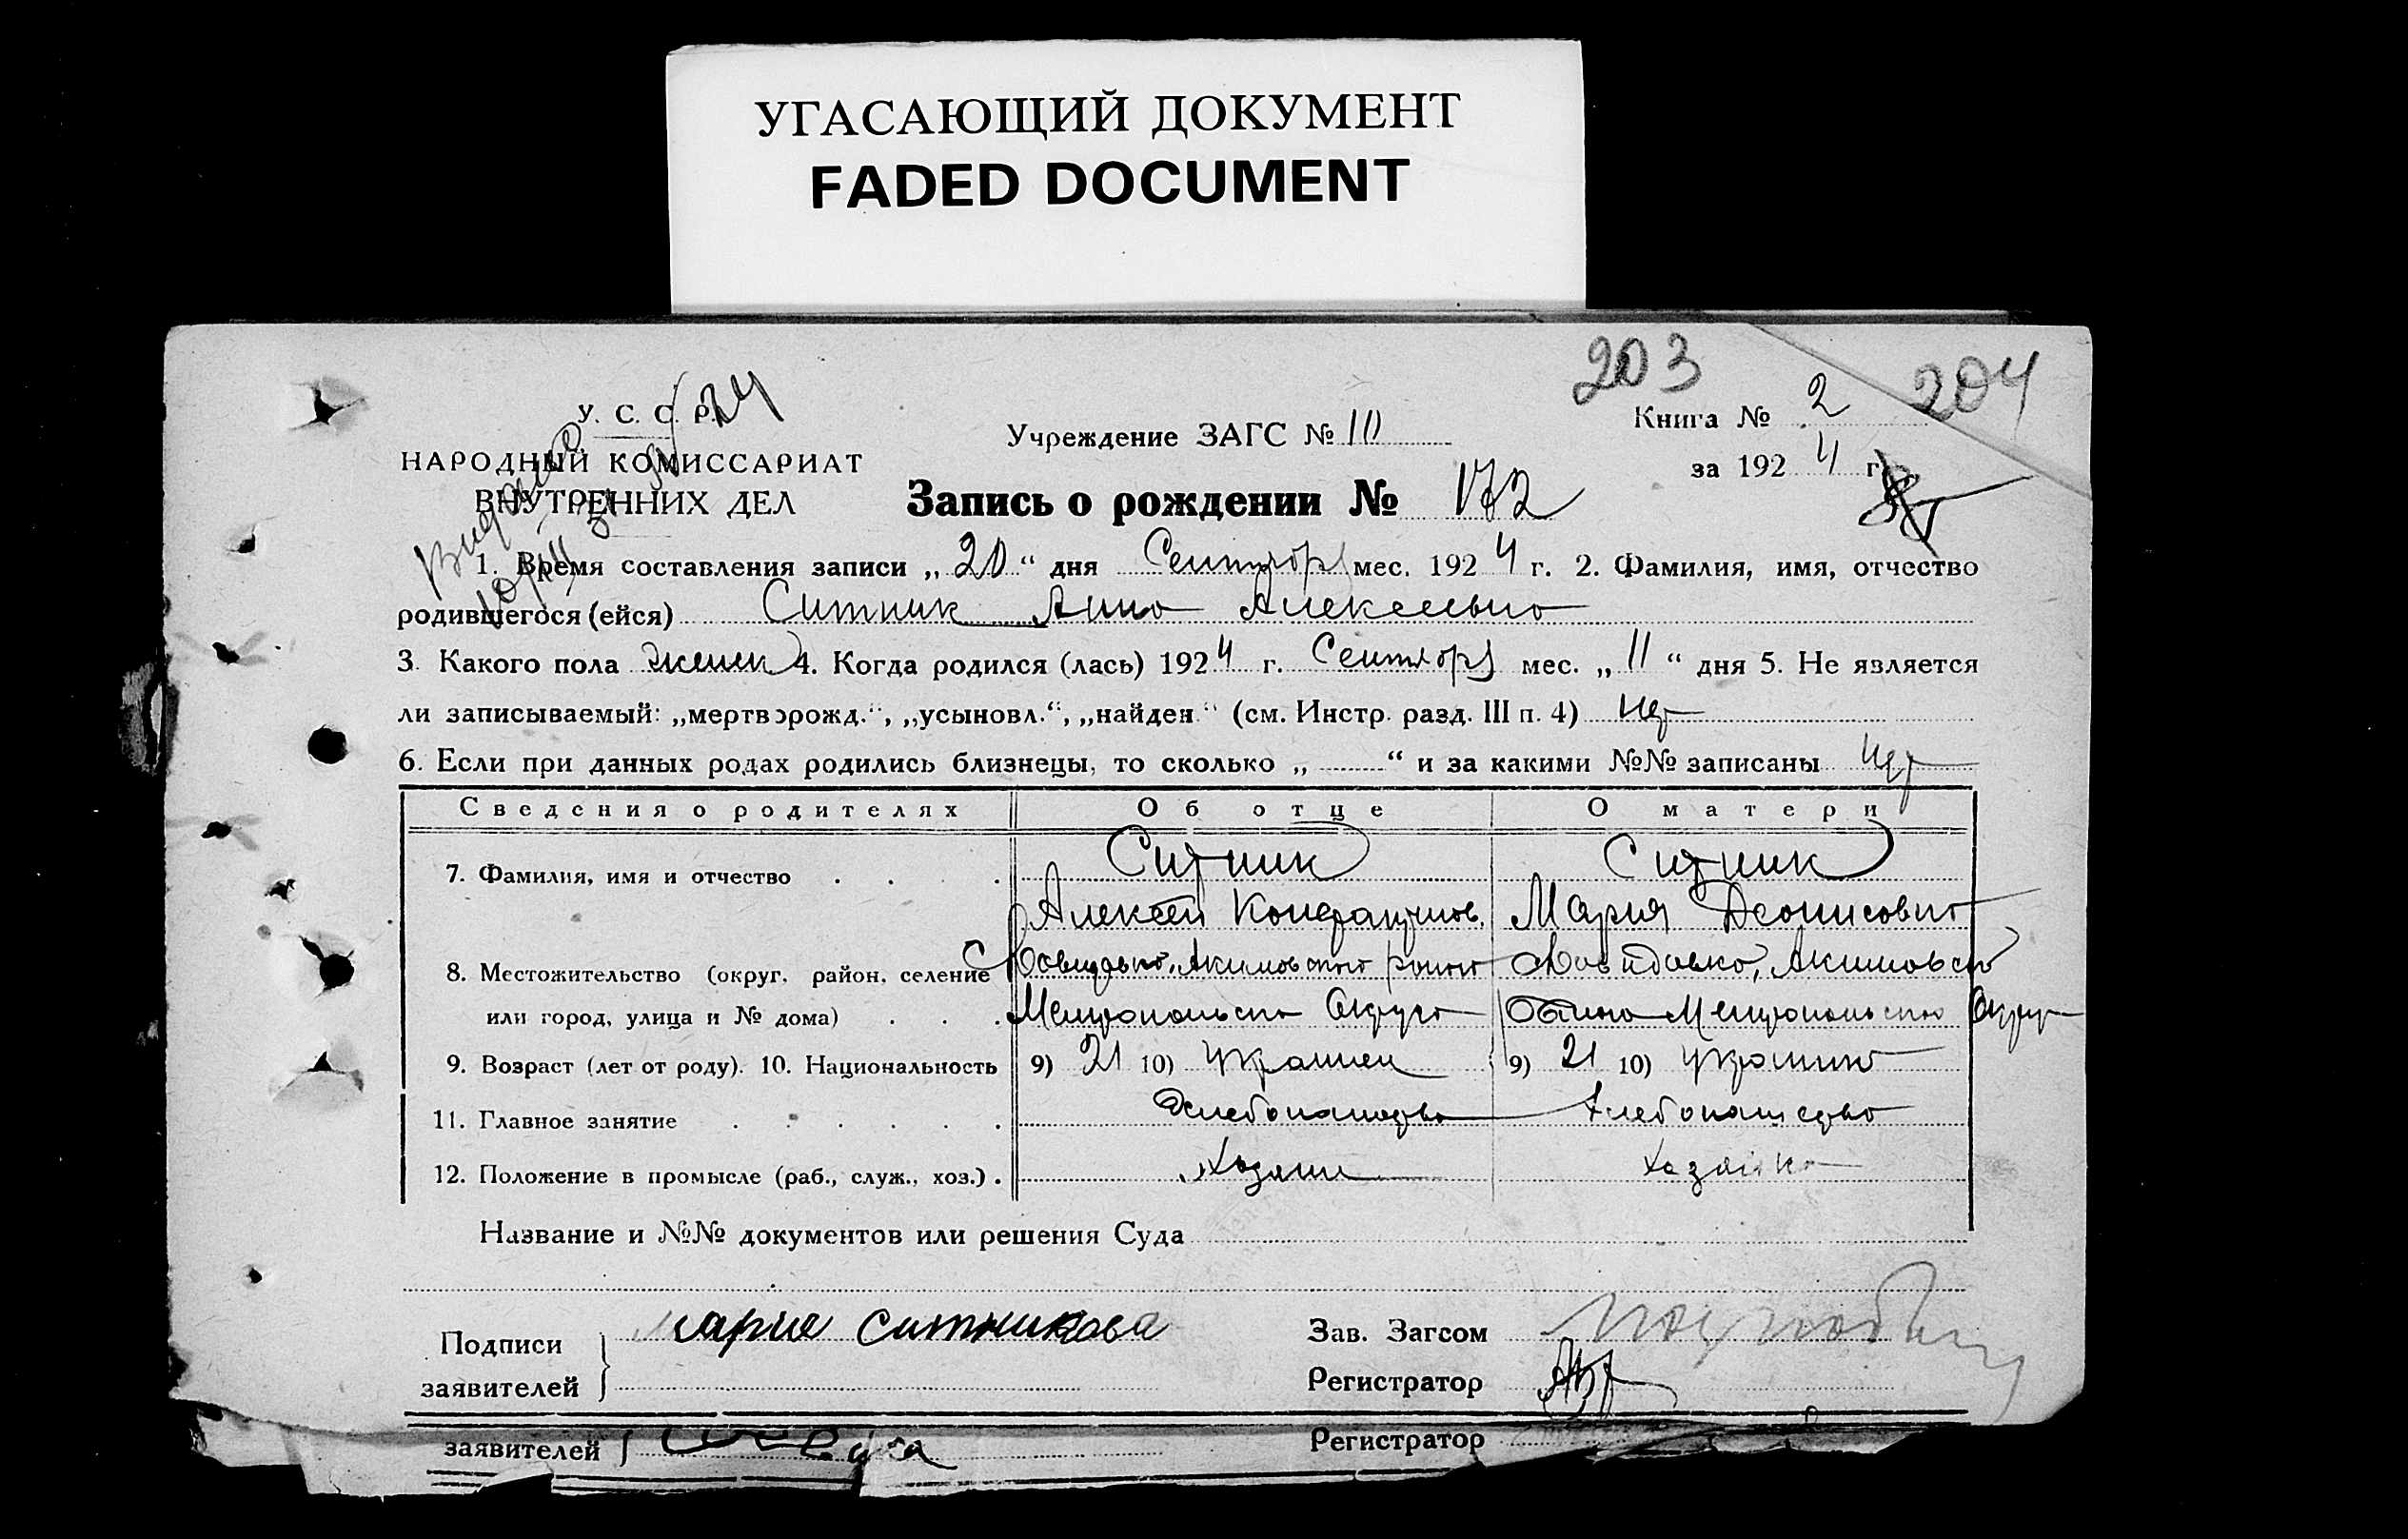 УГАСАЮЩИЙ ДОКУМЕНТ
FADED DOCUMENT
203
204
У. С. С. Р.
НАРОДНЫЙ КОМИССАРИАТ
ВНУТРЕННИХ ДЕЛ
Учреждение ЗАГС № 10
Книга № 2
за 1924 г.
Запись о рождении № 172
1. Время составления записи „20“ дня Сентября мес. 1924 г. 2. Фамилия, имя, отчество
родившегося (ейся) Ситник Анна Алексеевна
3. Какого пола женск 4. Когда родился (лась) 1924 г. Сентября мес. „11“ дня 5. Не является
ли записываемый: „мертворожд.“, „усыновл.“, „найден“ (см. Инстр. разд. III п. 4) нет
6. Если при данных родах родились близнецы, то сколько „ “ и за какими №№ записаны нет
Сведения о родителях Об отце О матери
7. Фамилия, имя и отчество Ситник Ситник
Алексей Мария Деонисовна
8. Местожительство (округ, район, селение Акимовского района
или город, улица и № дома) Мелитопольского Округа Мелитопольского Округа
9. Возраст (лет от роду). 10. Национальность 9) 21 10) Украинец 9) 21 10) украинка
11. Главное занятие Хлебопашество Хлебопашество
12. Положение в промысле (раб., служ., хоз.) Хозяин Хозяйка
Название и №№ документов или решения Суда
Подписи
заявителей
Мария Ситникова
Зав. Загсом
Регистратор
заявителей
Регистратор